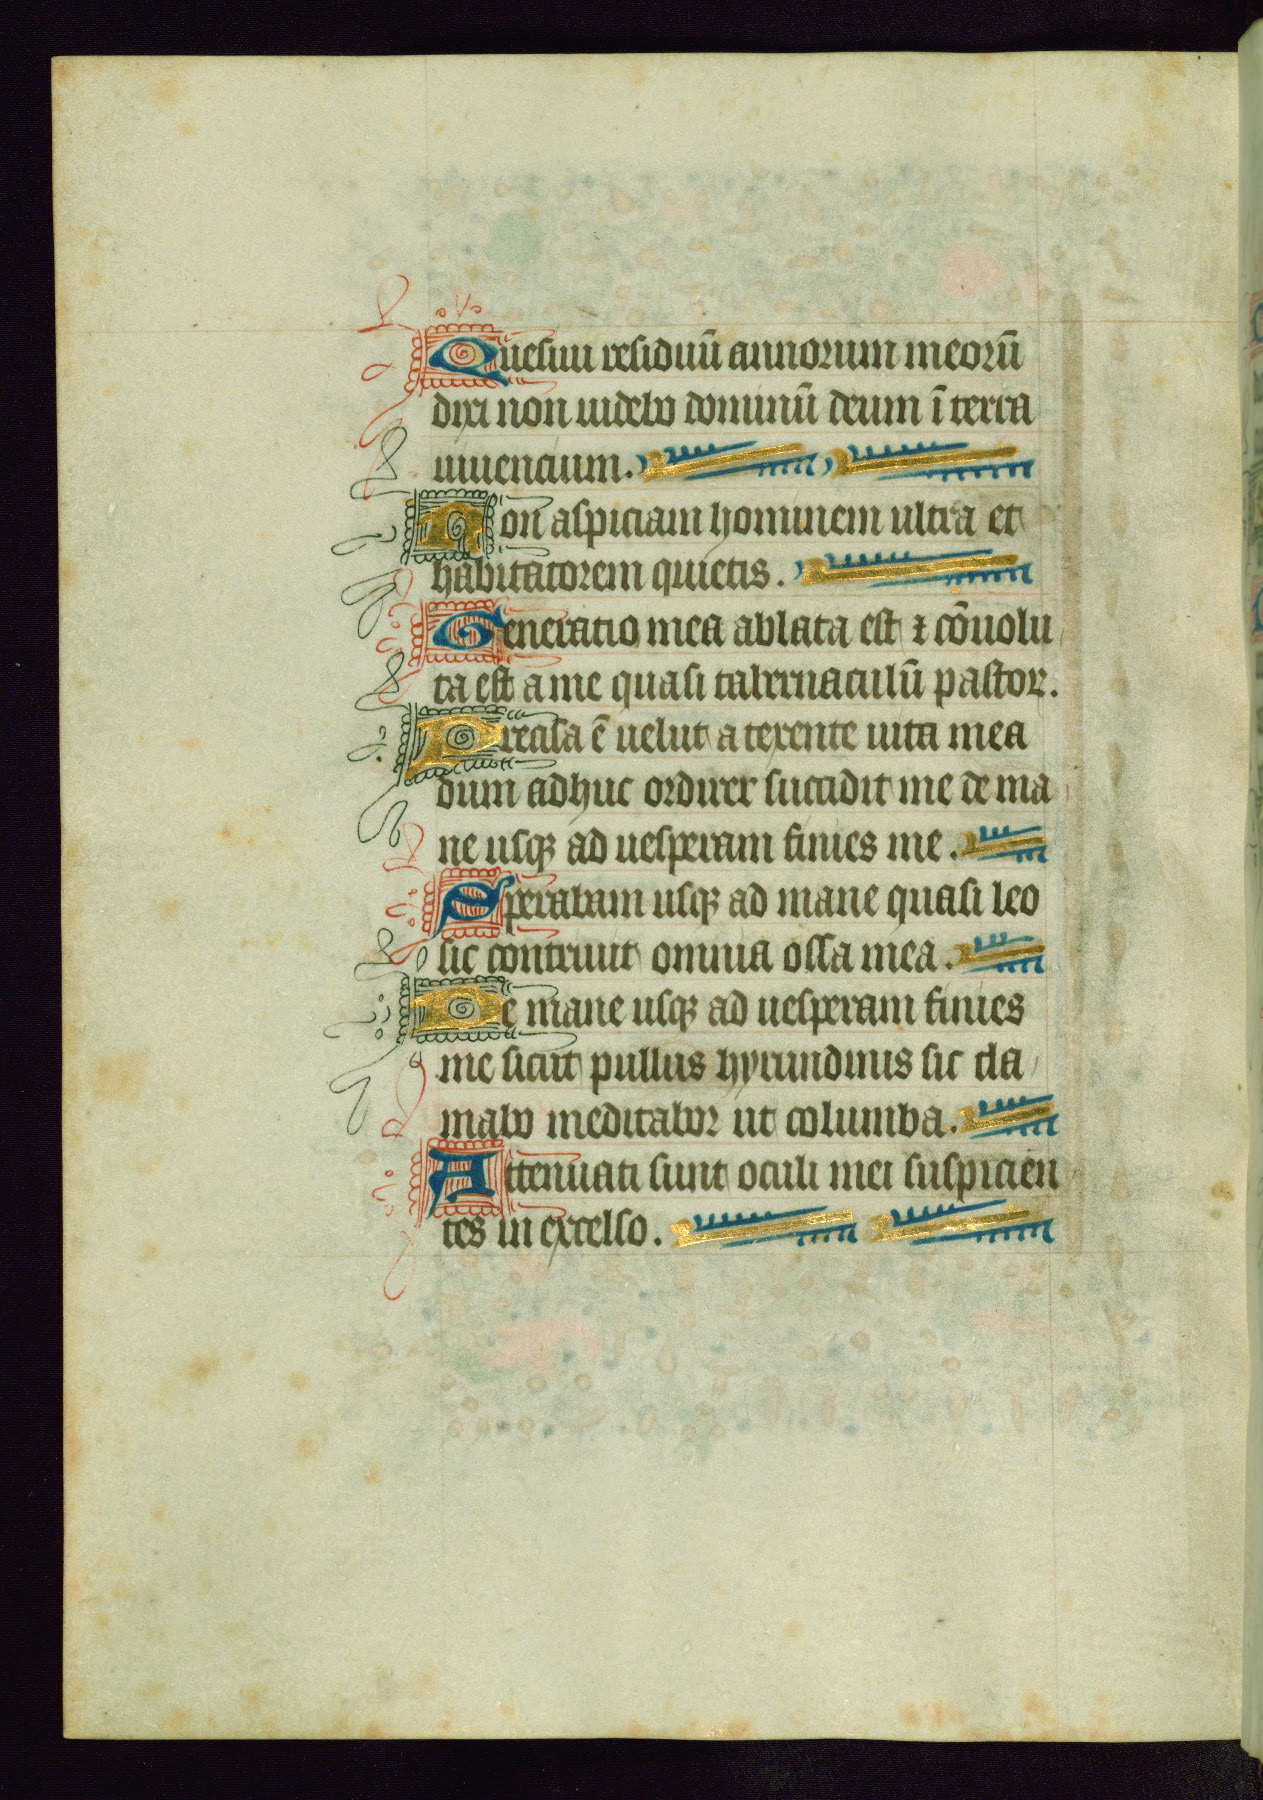 Quesiui residuū annorum meorū
dixi non uidebo dominū deum ī terra
uiuencium.
Non aspiciam hominem ultra et
habitatorem quietis.
Generatio mea ablata est ⁊ cōuolu
ta est a me quasi tabernaculū pastor.
Precisa ē uelut a texente uita mea
dum adhuc ordirer succidit me de ma
ne usqꝫ ad uesperam finies me.
Sperabam usqꝫ ad mane quasi leo
sic contriuit omnia ossa mea.
De mane usqꝫ ad uesperam finies
me sicut pullus hyrundinis sic cla
mabo meditabor ut columba.
Attenuati sunt oculi mei suspicien
tes in excelso.